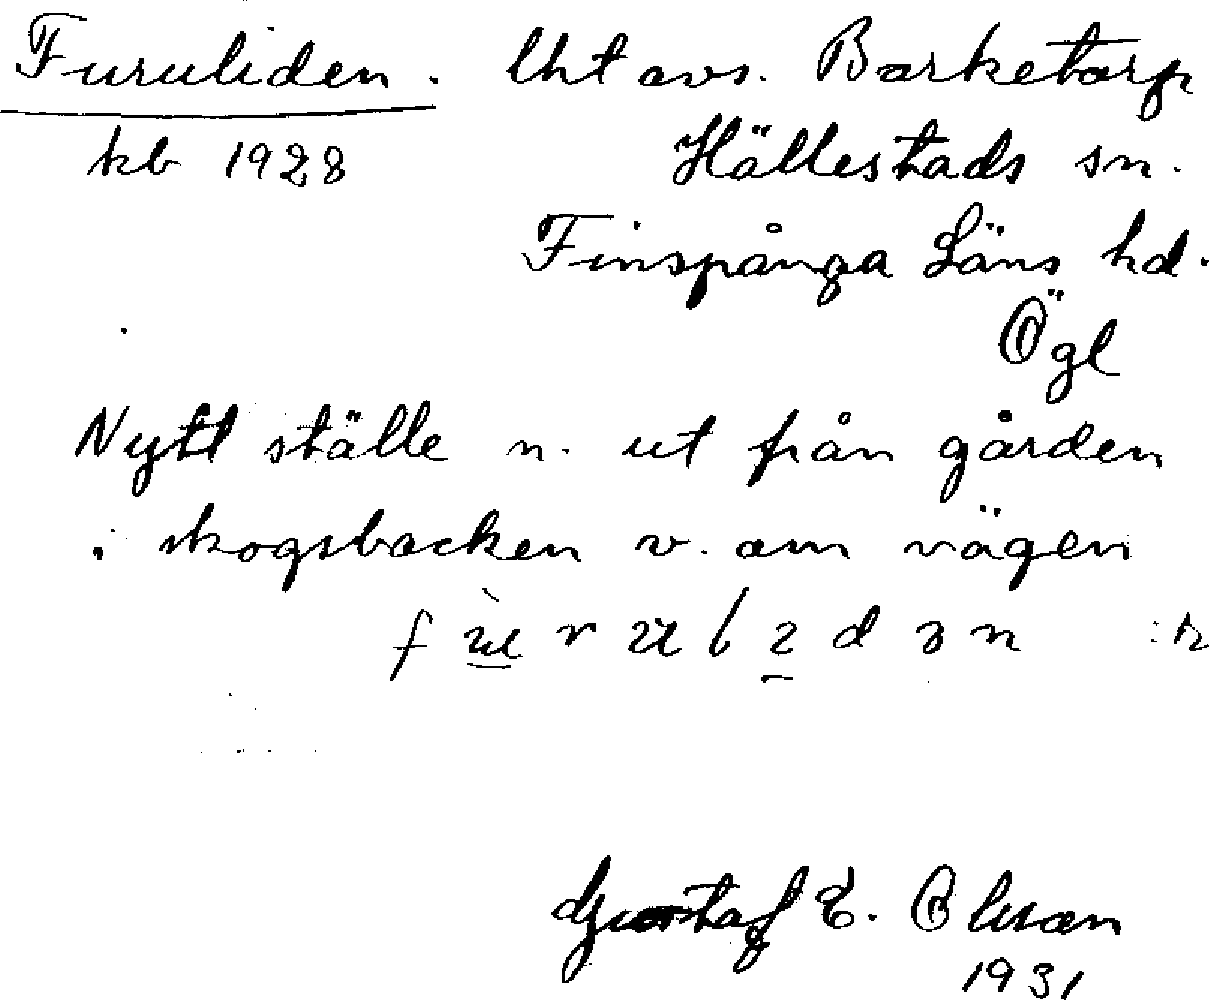 Furuliden. lht avs. Barketorp
kb 1928 Hällestads sn.
Finspånga Läns hd.
Ögl
Nytt ställe n. ut från gården
i skogsbacken v. om vägen
Gustaf E. Olsson
1931